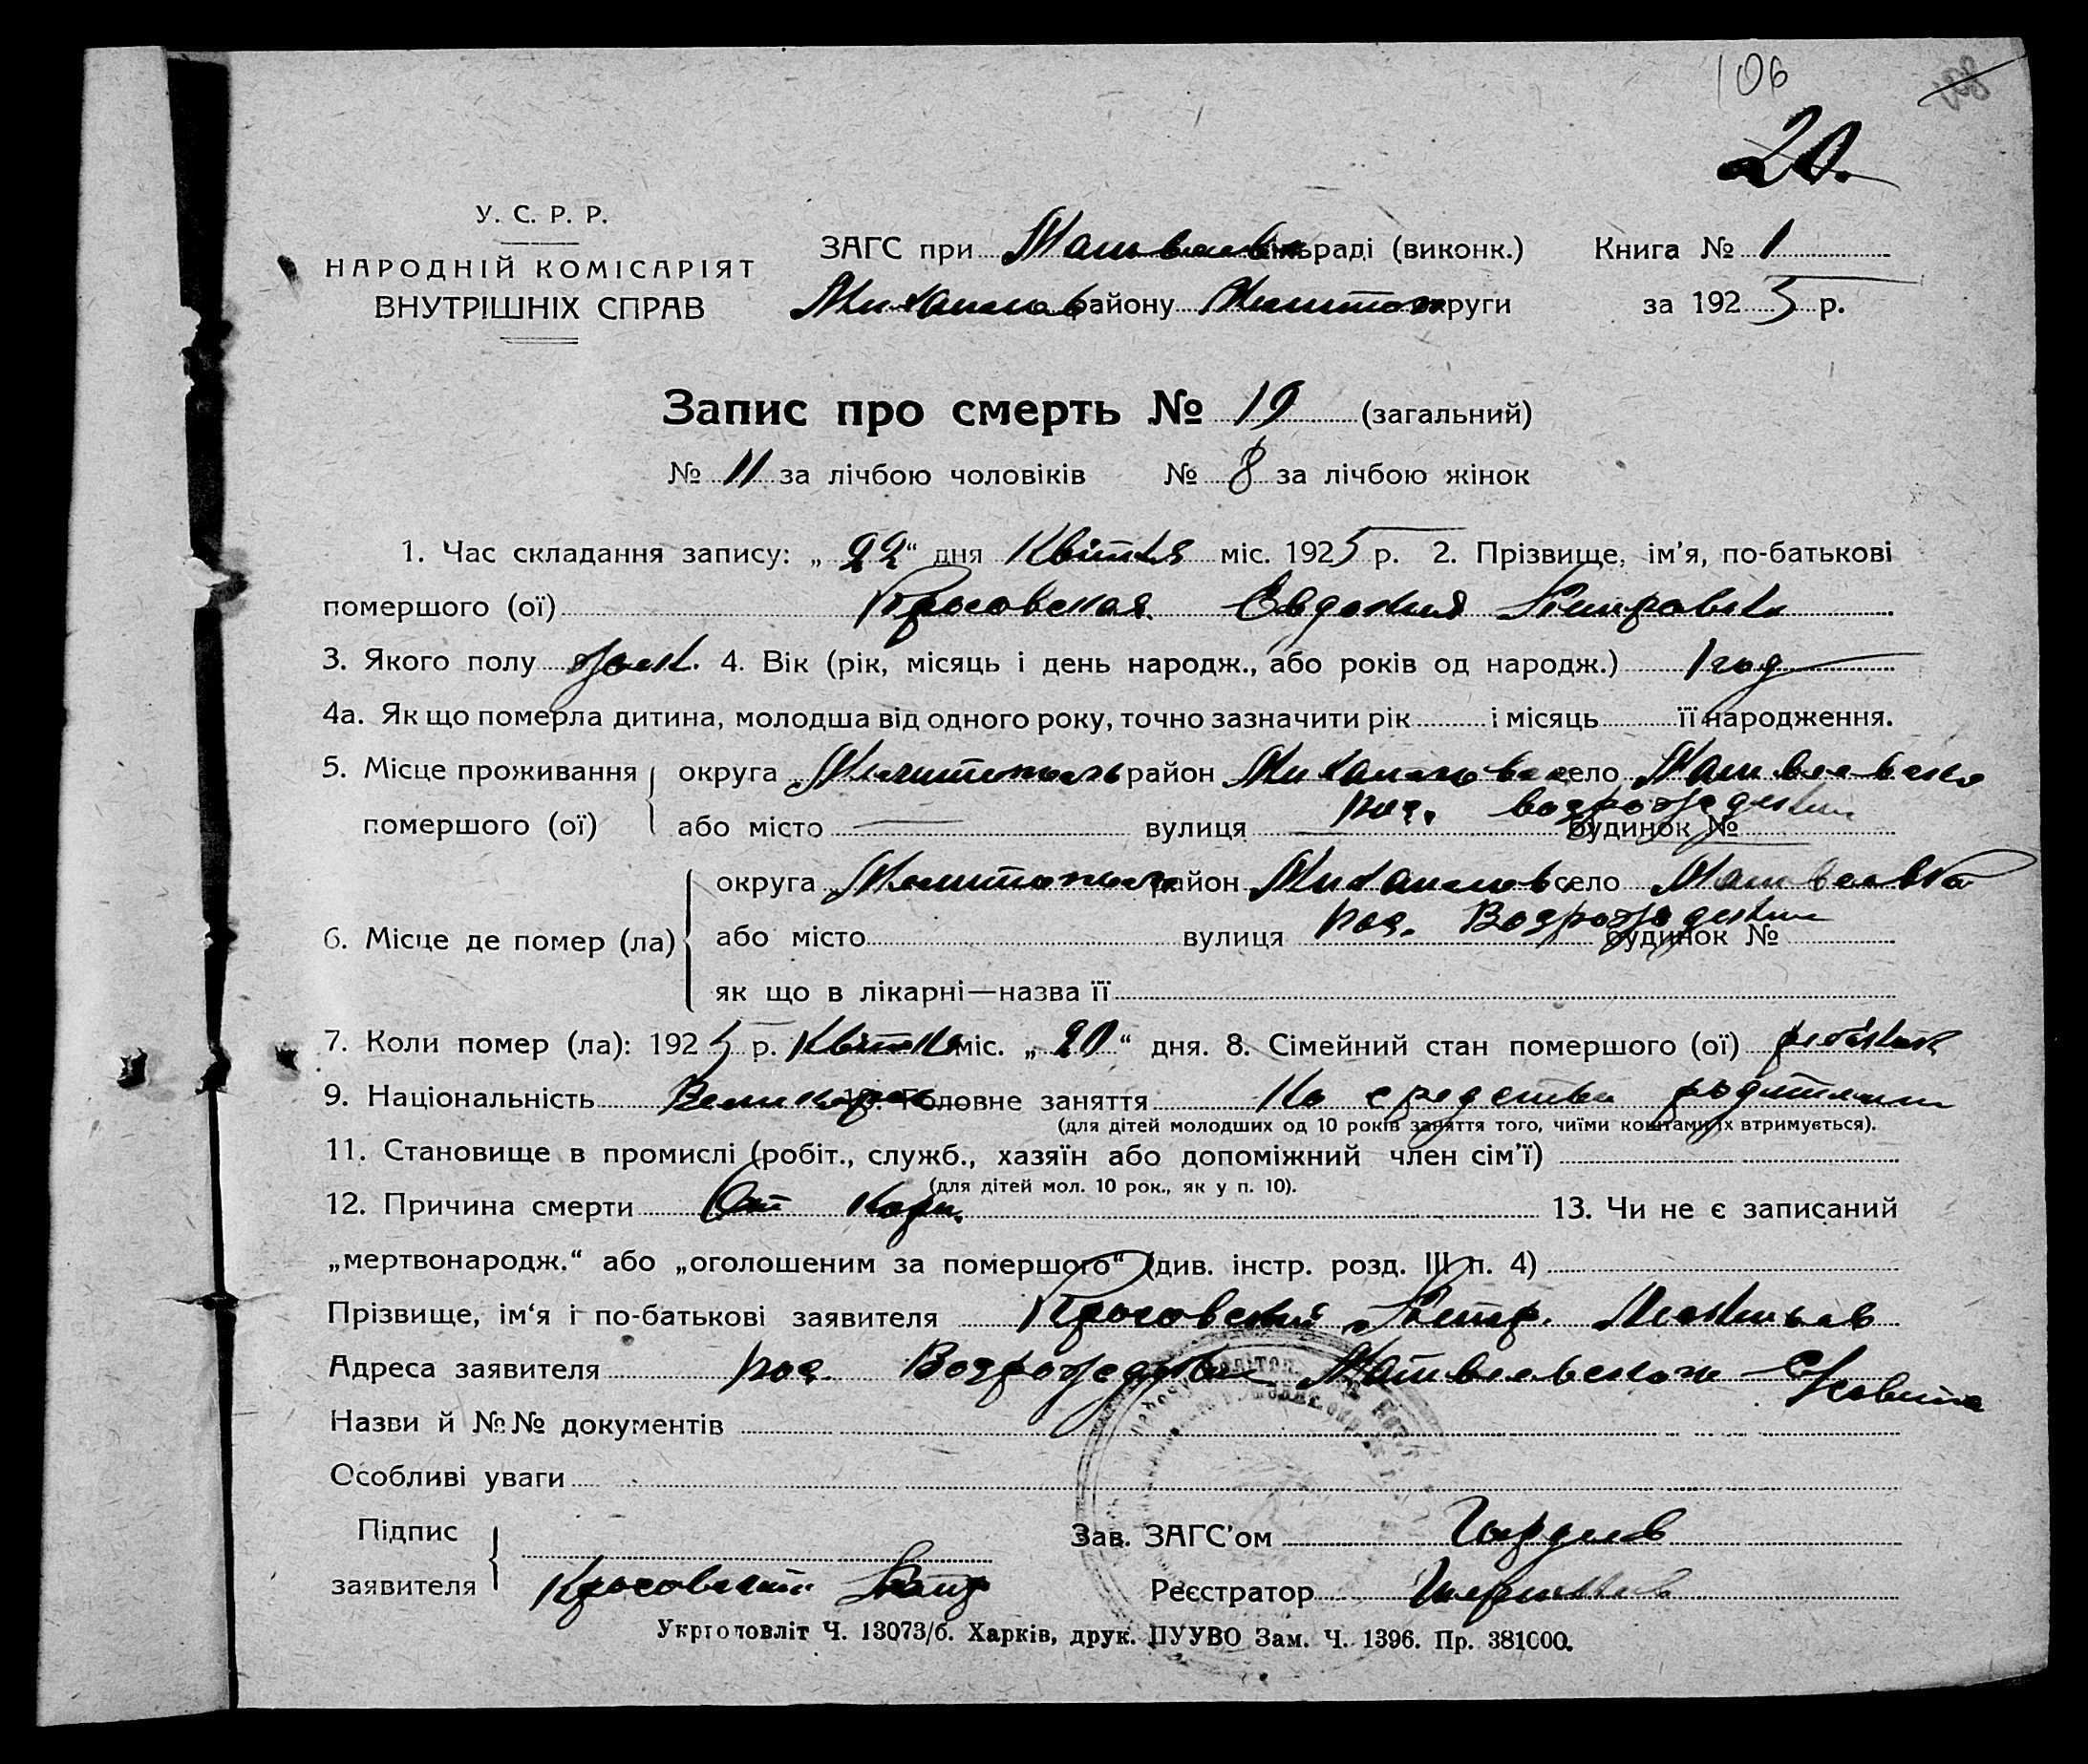 106
108
20.
У. С. Р. Р.
НАРОДНІЙ КОМІСАРІЯТ
ВНУТРІШНІХ СПРАВ
ЗАГС при Матвеевск сільраді (виконк.) Книга № 1
Михайлов району Мелитоп округи за 1925 р.
Запис про смерть № 19 (загальний)
№ 11 за лічбою чоловіків № 8 за лічбою жінок
1. Час складання запису: „22“ дня Квітня міс. 1925 р. 2. Прізвище, ім'я, по-батькові
помершого (ої) Красовская Евдокия Петровна
3. Якого полу жен. 4. Вік (рік, місяць і день народж., або років од народж.) 1 год
4а. Як що померла дитина, молодша від одного року, точно зазначити рік і місяць її народження.
5. Місце проживання округа Мелитопольс район Михайловск село Матвеевская
помершого (ої) або місто вулиця пос. Возрождения будинок №
округа Мелитопольск район Михайловск село Матвеевка
6. Місце де помер (ла) або місто вулиця пос. Возрождения будинок №
як що в лікарні—назва її
7. Коли помер (ла): 1925 р. Квітня міс. „20“ дня. 8. Сімейний стан помершого (ої) ребёнок
9. Національність Великорос 10. Головне заняття На средства родителей
(для дітей молодших од 10 років заняття того, чиїми коштами їх втримується).
11. Становище в промислі (робіт., служб., хазяїн або допоміжний член сім'ї)
(для дітей мол. 10 рок., як у п. 10).
12. Причина смерти От кори. 13. Чи не є записаний
„мертвонародж.“ або „оголошеним за помершого“ (див. інстр. розд. III п. 4)
Прізвище, ім'я і по-батькові заявителя Красовский Петр.
Адреса заявителя пос. Возрождения Матвеевском с/Совита
Назви й №№ документів
Особливі уваги
Підпис
заявителя Красовский Петр
Зав. ЗАГС'ом Гордеев
Реєстратор
Укрголовліт Ч. 13073/б. Харків, друк. ПУУВО Зам. Ч. 1396. Пр. 381000.